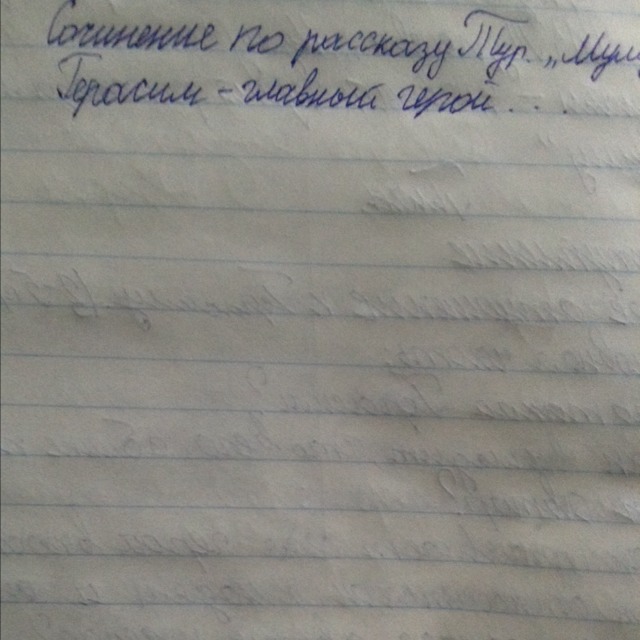 Сочинение по рассказу Тур. „Му
Герасим – главный герой...